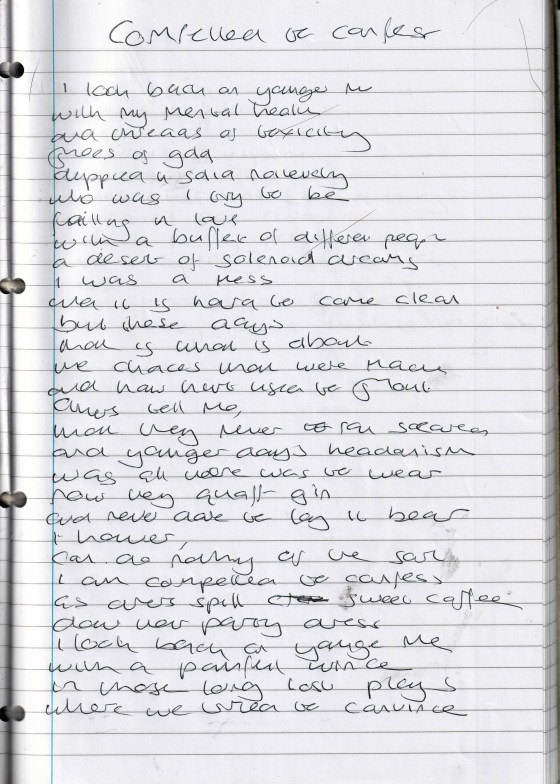 Compelled to confess
I look back on younger me
with my mental health
and of toxicity
of gold
in solid
who was I to be
falling in love
with a buffet of different people
a desert of solenoid dreams
I was a mess
and it is hard to come clean
but these days
that is what is about
the choices that were made
and how their used to
Others tell me,
that they never ran scared
and younger days headanism
was all there was to wear
now they quaff gin
and never dare to lay it bear
I however,
can do nothing of the sort
I am compelled to confess
as others spill sweet coffee
down their party dress
I look back on younger me
with a painful wince
in those long lost plays
where we tried to convince